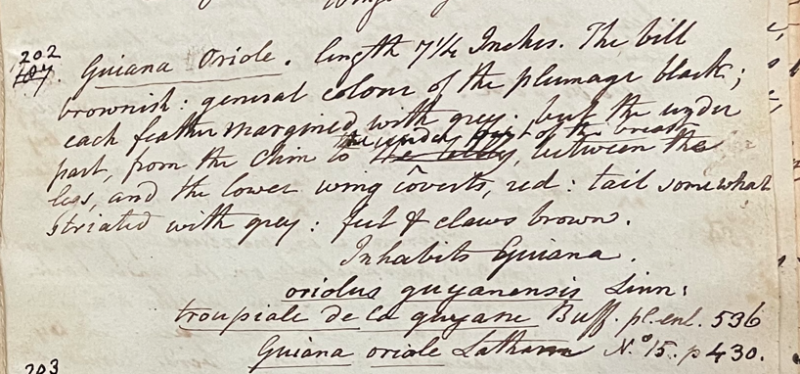 202
107. Guiana Oriole. length 7 1/4 Inches. The bill
brownish: general colour of the plumage black;
each feather margined with grey: but the under
part, from the Chin to the under part of the breast, between the
legs, and the lower wing coverts, red: tail somewhat
striated with grey: feet & claws brown.
Inhabits Guiana.
oriolus guyanensis Linn:
troupiale de la guyane Buff. pl. enl. 536
Guiana oriole Latham No. 15. p 430.
203